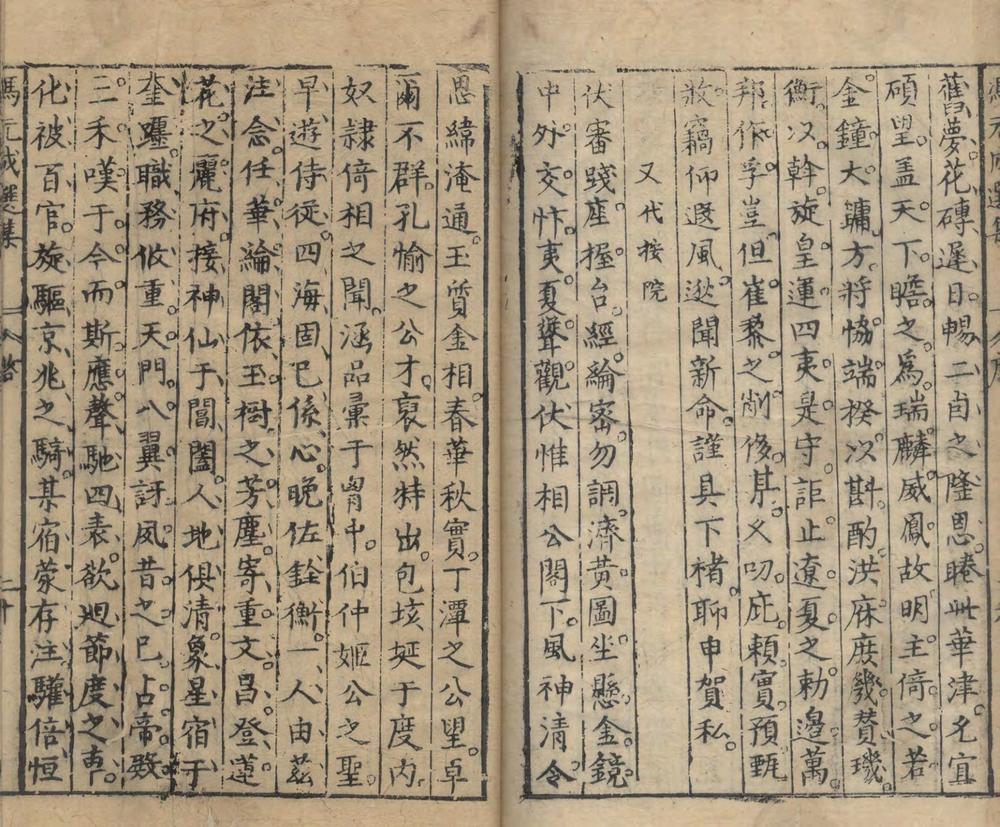 舊夢花磚遲日暢二卣之隆恩睠此華津允宜
碩望盖天下瞻之為瑞麟威鳳故明主倚之若
金鐘大鏞方將恊端揆以斟酌洪庥庶幾賛璣
衡以斡旋皇運四夷是守詎止遼夏之勅邊萬
邦作孚豈但崔黎之削後某又叨庇賴實預甄
㪚竊仰遐風逖聞新命謹具下楮聊申賀私
又代按院
伏審踐座握台經綸密勿調濟黃圖坐懸金鏡
中外交忭夷夏聳觀伏惟相公閣下風神清令
思緯淹通玉質金相春華秋實丁潭之公望卓
爾不群孔愉之公才裒然特出包垓埏于度内
奴隷倚相之聞涵品彚于胷中伯仲姬公之聖
早遊侍從四海固已係心晩佐銓衡一人由茲
注念任華綸閣依玉樹之芳塵寄重文昌登蓮
花之麗府接神仙于閶闔人地俱清象星宿于
奎躔職務攸重天門八翼訝夙昔之已占帝殿
三禾嘆于今而斯應聲馳四表欲廻節度之車
化被百官旋驅京兆之騎某宿䝉存注驩倍恒
馮元成選集
二十